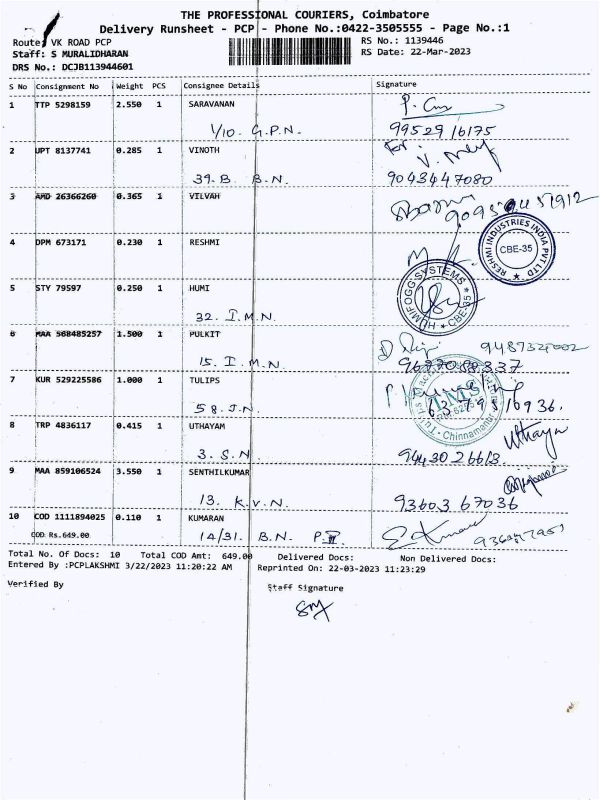 THE PROFESSIONAL COURIERS, Coimbatore
Delivery Runsheet - PCP - Phone No.:0422-3505555 - Page No.:1
Route: VK ROAD PCP
RS No.: 1139446
Staff: S MURALIDHARAN
RS Date: 22-Mar-2023
DRS No.: DCJB113944601
S No Consignment No Weight PCS Consignee Details Signature
1 TTP 5298159 2.550 1 SARAVANAN
1/10. G.P.N. 99529 16175
2 UPT 8137741 0.285 1 VINOTH
39.B. B.N. 9043447080
3 AMD 26366260 0.365 1 VILVAH
4 DPM 673171 0.230 1 RESHMI
RESHMI INDUSTRIES INDIA PVT LTD
CBE-35
5 STY 79597 0.250 1 HUMI
HUMIFOGG SYSTEMS
CBE-35
32. I.M.N.
6 MAA 568485257 1.500 1 PULKIT
15. I.M.N. 9677088337
7 KUR 529225586 1.000 1 TULIPS
58.J.N.
Chinnamanur
8 TRP 4836117 0.415 1 UTHAYAM Uthaya
3. S.N 9443026613
9 MAA 859106524 3.550 1 SENTHILKUMAR
13. K.V.N. 93603 67036
10 COD 1111894025 0.110 1 KUMARAN
COD Rs.649.00 14/31. B.N.
Total No. Of Docs: 10 Total COD Amt: 649.00 Delivered Docs: Non Delivered Docs:
Entered By :PCPLAKSHMI 3/22/2023 11:20:22 AM Reprinted On: 22-03-2023 11:23:29
Verified By Staff Signature